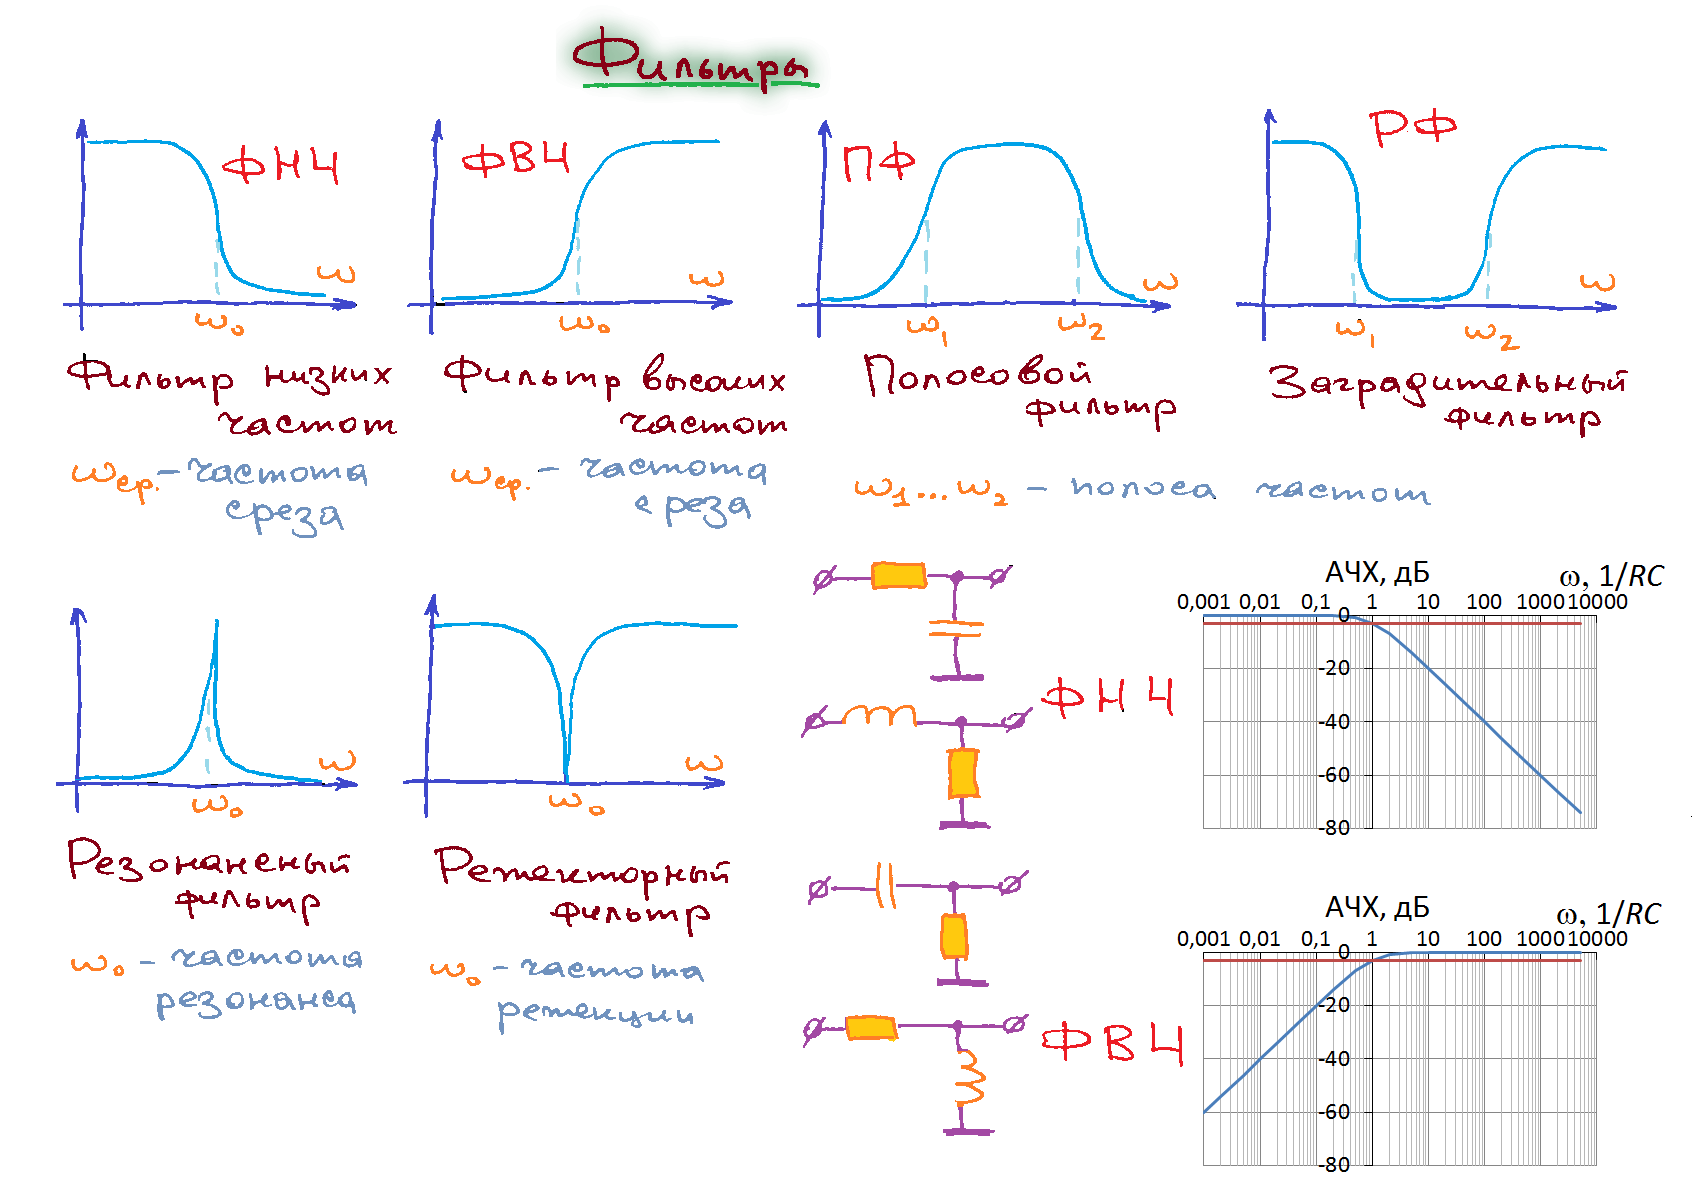 Фильтры
ФНЧ
ω
ω₀
Фильтр низких
частот
ωср. – частота
среза
ФВЧ
ω
ω₀
Фильтр высоких
частот
ωср. – частота
среза
ПФ
ω
ω₁
ω₂
Полосовой
фильтр
РФ
ω
ω₁
ω₂
Заградительный
фильтр
ω₁...ω₂ – полоса частот
ω
ω₀
Резонансный
фильтр
ω₀ – частота
резонанса
ω
ω₀
Режекторный
фильтр
ω₀ – частота
режекции
ФНЧ
АЧХ, дБ
ω, 1/RC
0,001 0,01 0,1 1 10 100 1000 10000
0
-20
-40
-60
-80
ФВЧ
АЧХ, дБ
ω, 1/RC
0,001 0,01 0,1 1 10 100 1000 10000
0
-20
-40
-60
-80